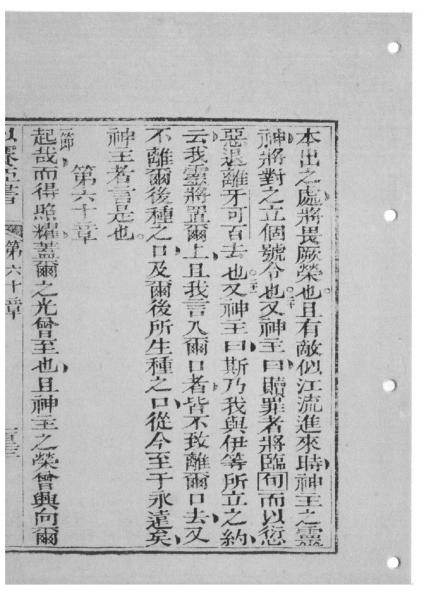 本出之處將畏厥榮也且有敵似江流進來時神主之靈
神將對之立個號令也二十又神主曰贖罪者將臨句而以愆
惡退離牙可百去也二一又神主曰斯乃我與伊等所立之約
云我靈將置爾上且我言入爾口者皆不致離爾口去又
不離爾後種之口及爾後所生種之口從今至于永遠矣
神主者言是也
第六十章
一節起哉而得昭耀蓋爾之光曾至也且神主之榮曾興向爾
以賽亞書 第六十章